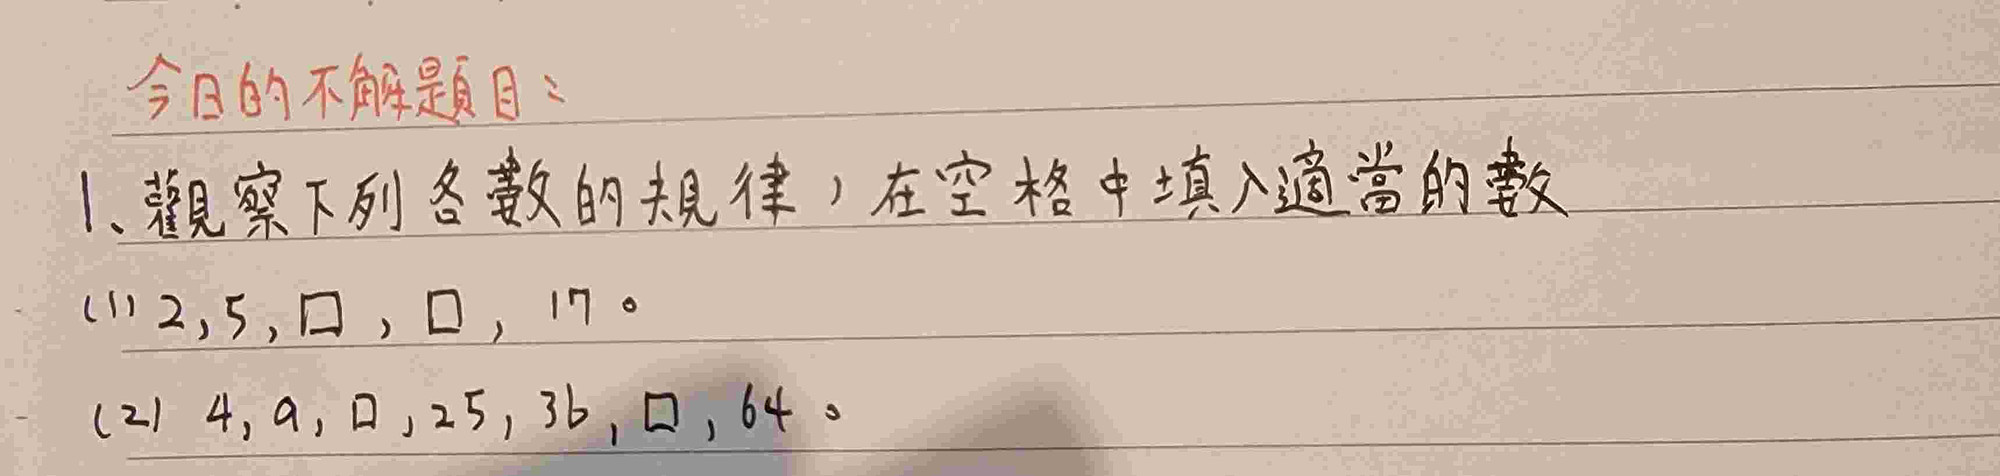 今日的不解題目:
1、觀察下列各數的規律,在空格中填入適當的數
(1) 2,5,口,口,17。
(2) 4,9,口,25,36,口,64。